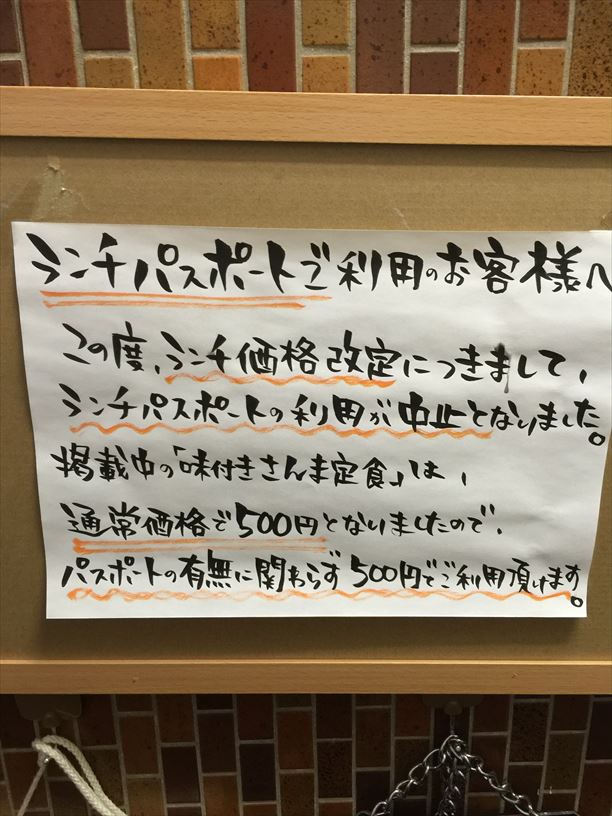 ランチパスポートご利用のお客様へ
この度、ランチ価格改定につきまして、
ランチパスポートの利用が中止となりました。
掲載中の「味付きさんま定食」は、
通常価格で500円となりましたので、
パスポートの有無に関わらず500円でご利用頂けます。